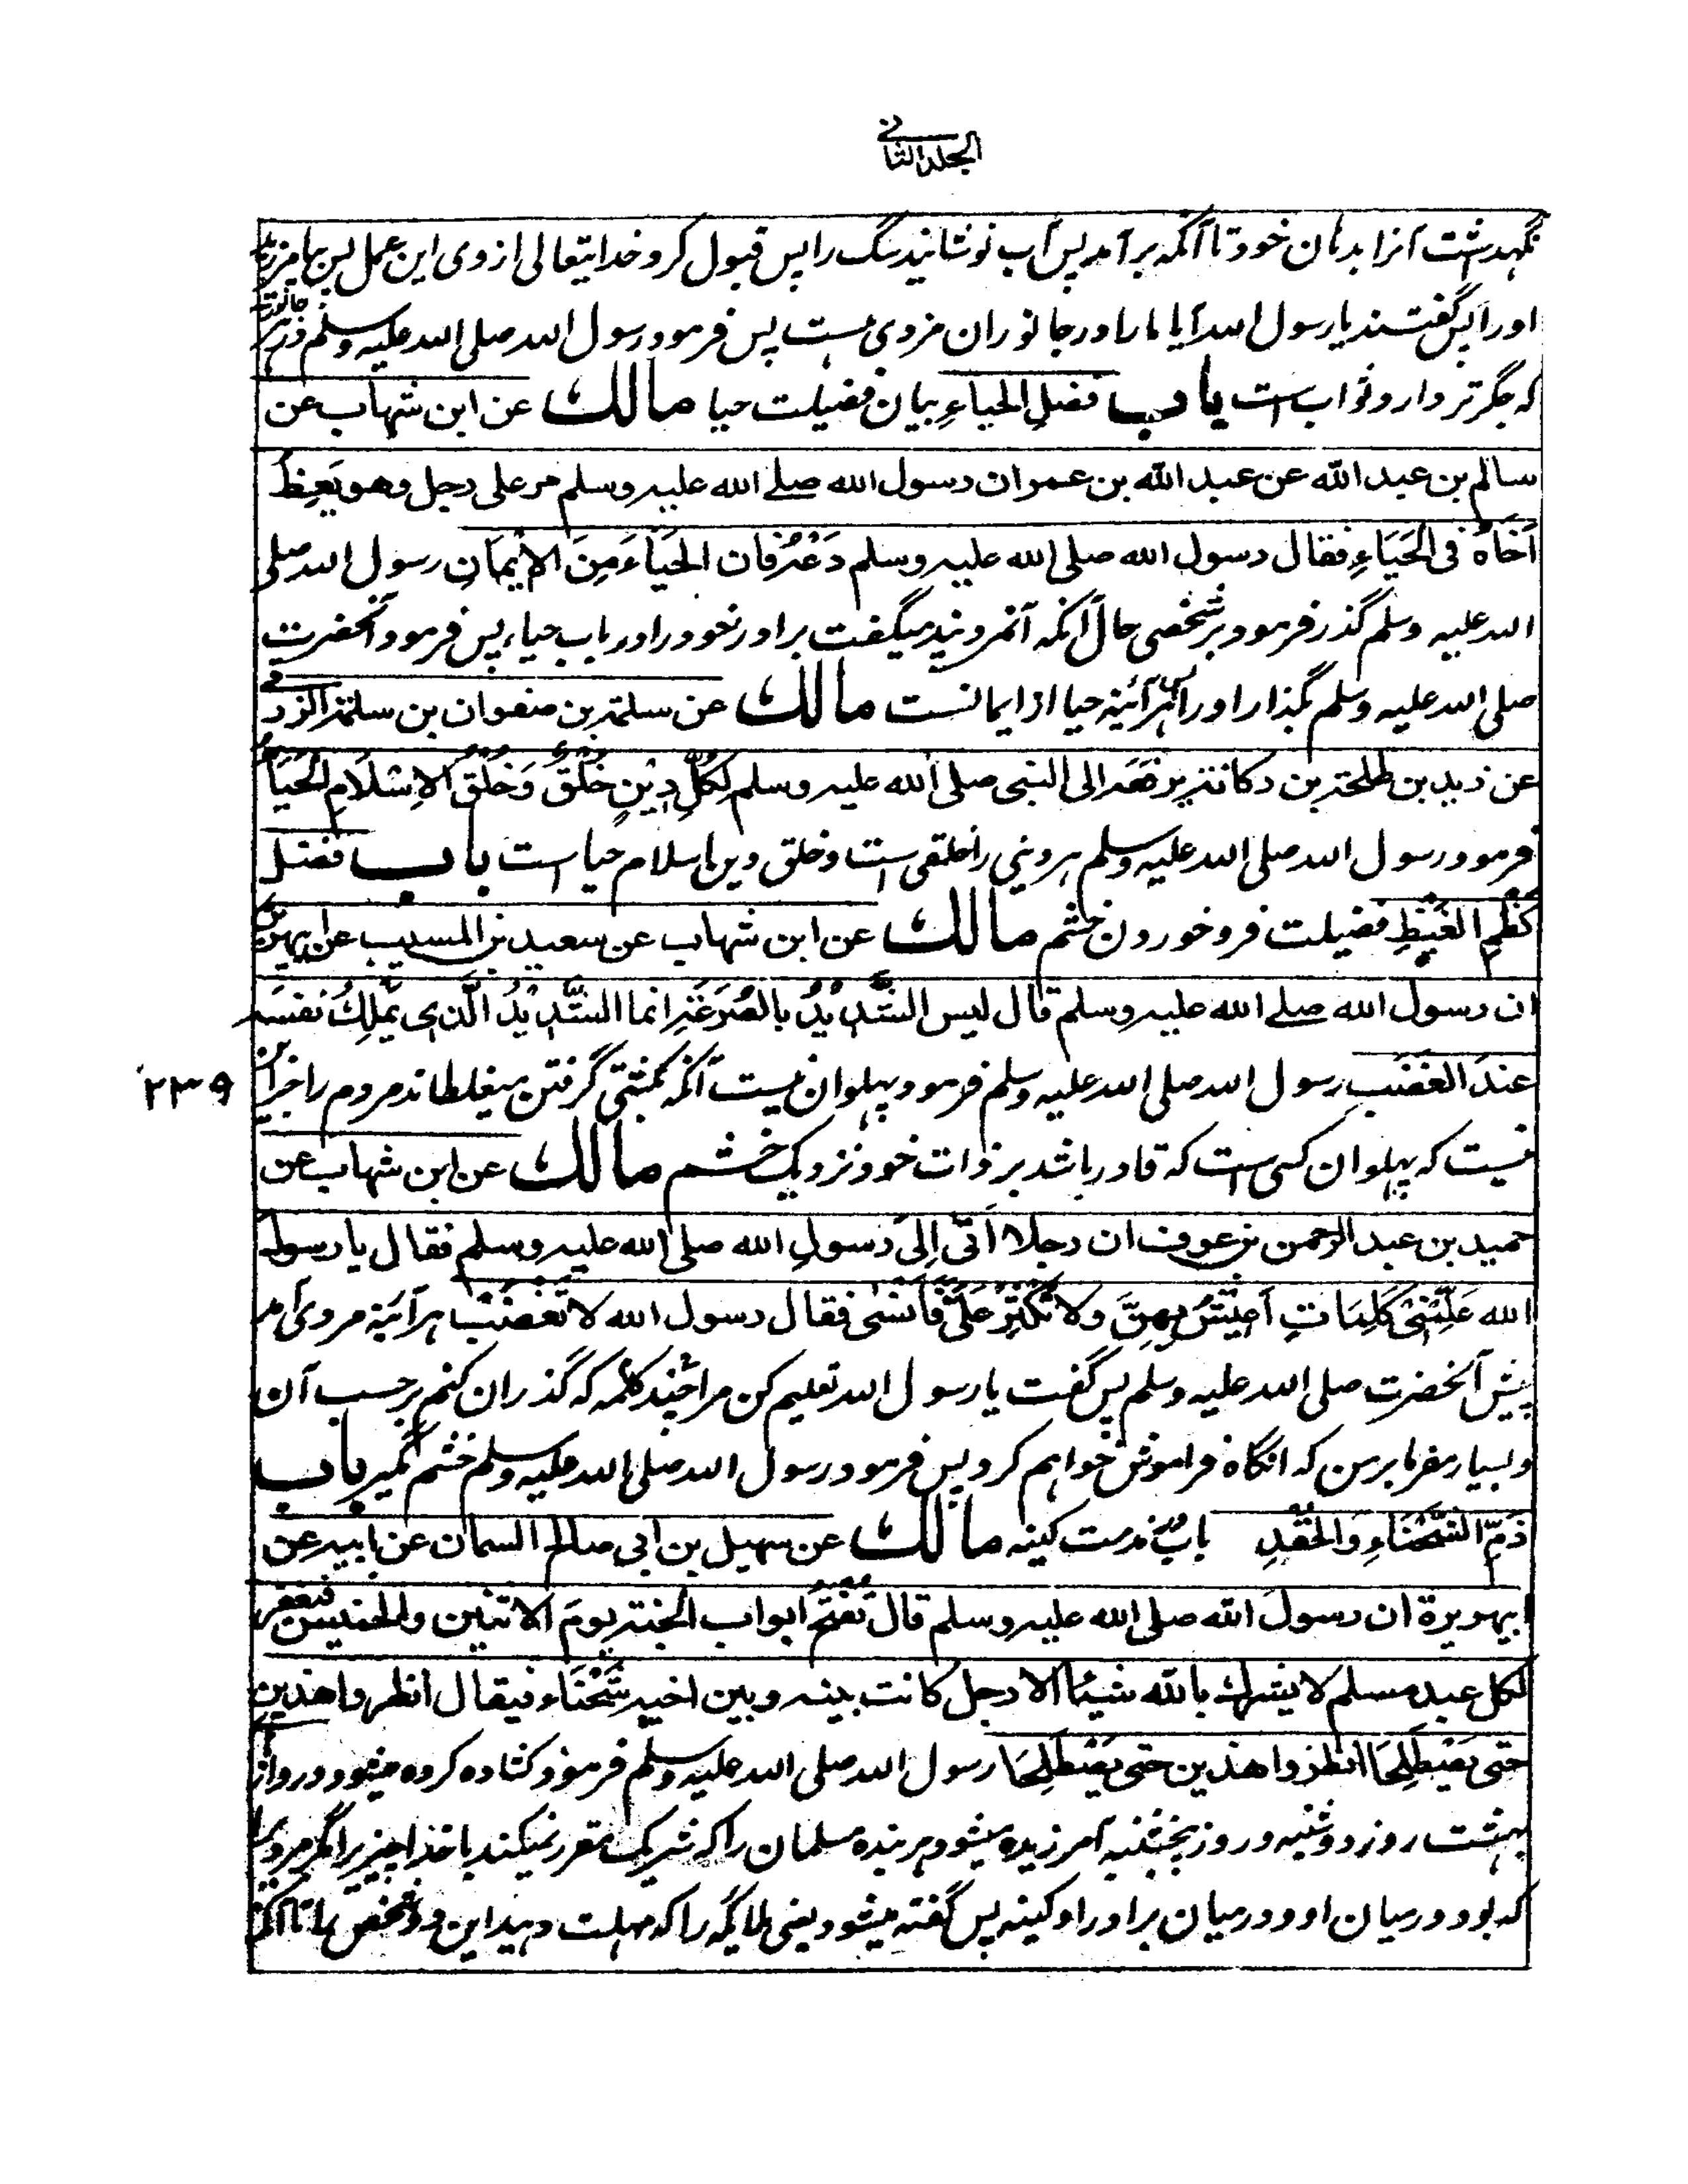 الجلد الثانی
نگهداشت آنرا بدهان خود تا آنکه برآمد پس آب نوشانید سگ را پس قبول کرد خدایتعالی از وی این عمل پس بیامرزید
اورا پس گفتند یا رسول الله آیا ما را در جانوران مزدی هست پس فرمود رسول الله صلی الله علیه وسلم در هر جانور
که جگر تر دارد ثواب است باب فضلِ الحیاءِ بیان فضیلت حیا مالك عن ابن شهاب عن
سالم بن عبد الله عن عبد الله بن عمر ان رسول الله صلے الله علیہ وسلم مر علی رجل وهو یَعِظُ
اَخَاهُ فی الحَیَاءِ فقال رسول الله صلی الله علیہ وسلم دَعْهُ فان الحَیَاءَ مِنَ الاِیْمَانِ رسول الله صلی
الله علیه وسلم گذر فرمود بر شخصی حال آنکه آنمرد پند میگفت برادر خود را در باب حیا، پس فرمود آنحضرت
صلی الله علیه وسلم بگذار او را پس هر آئینه حیا از ایمانست مالك عن سلمة بن صفوان بن سلمة الزرقے
عن زید بن طلحة بن رکانة یرفعه الی النبی صلی الله علیہ وسلم لِکُلِّ دِیْنٍ خُلُقٌ وَخُلُقُ الاِسْلَامِ الْحَیَاءُ
فرمود رسول الله صلی الله علیه وسلم هر دینی را خلقی است و خلق دین اسلام حیا است باب فضل
کَظْمِ الْغَیْظِ فضیلت فرو خوردن خشم مالك عن ابن شهاب عن سعید بن المسیب عن ابیهریرة
ان رسول الله صلے الله علیہ وسلم قال لیس الشَّدِیْدُ بالصُّرَعَةِ انما الشَّدِیْدُ الَّذِی یَمْلِكُ نفسَہ
عندَ الغَضَبِ رسول الله صلی الله علیه وسلم فرمود پهلوان نیست آنکه بکشتی گرفتن میغلطاند مردم را جز این
۲۳۹
نیست که پهلوان کسی ست که قادر باشد بر ذات خود نزدیک خشم مالك عن ابن شهاب عن
حمید بن عبد الرحمن بن عوف ان رجلا اَتٰی اِلٰی رَسولِ الله صلی الله علیہ وسلم فقال یا رسول
الله عَلِّمْنِی کَلِمَاتٍ اَعِیْشُ بِهِنَّ ولا تُکْثِرْ عَلَیَّ فَاَنْسٰی فقال رسول الله لا تَغْضَبْ هر آئینه مردی آمد
پیش آنحضرت صلی الله علیه وسلم پس گفت یا رسول الله تعلیم کن مرا چند کلمه که گذران کنم برحسب آن
و بسیار مفرما بر من که آنگاه فراموش خواهم کرد پس فرمود رسول الله صلی الله علیه وسلم خشم مگیر باب
ذَمِّ الشَّحْنَاءِ وَالحِقْدِ باب مذمت کینه مالك عن سهیل بن ابی صالح السمان عن ابیه عن
ابیهریرة ان رسولَ الله صلی الله علیہ وسلم قال تُفْتَحُ ابواب الجنة یومَ الاثنین والخمیس فیغفر
لکل عبد مسلم لا یشرك بالله شیئا الا رجل کانت بینه وبین اخیه شَحْنَاء فیقال انظروا هذین
حتی یَصْطَلِحَا انظروا هذین حتی یَصْطَلِحَا رسول الله صلی الله علیه وسلم فرمود کشاده کرده میشود دروازهٔ
بهشت روز دوشنبه و روز پنجشنبه آمرزیده میشود هر بنده مسلمان را که شریک مقرر نمیکند با خدا چیزیرا مگر مردیرا
که بود درمیان او و درمیان برادر او کینه پس گفته میشود یعنی ملایکه را که مهلت دهید این دو شخص را تا آنکه